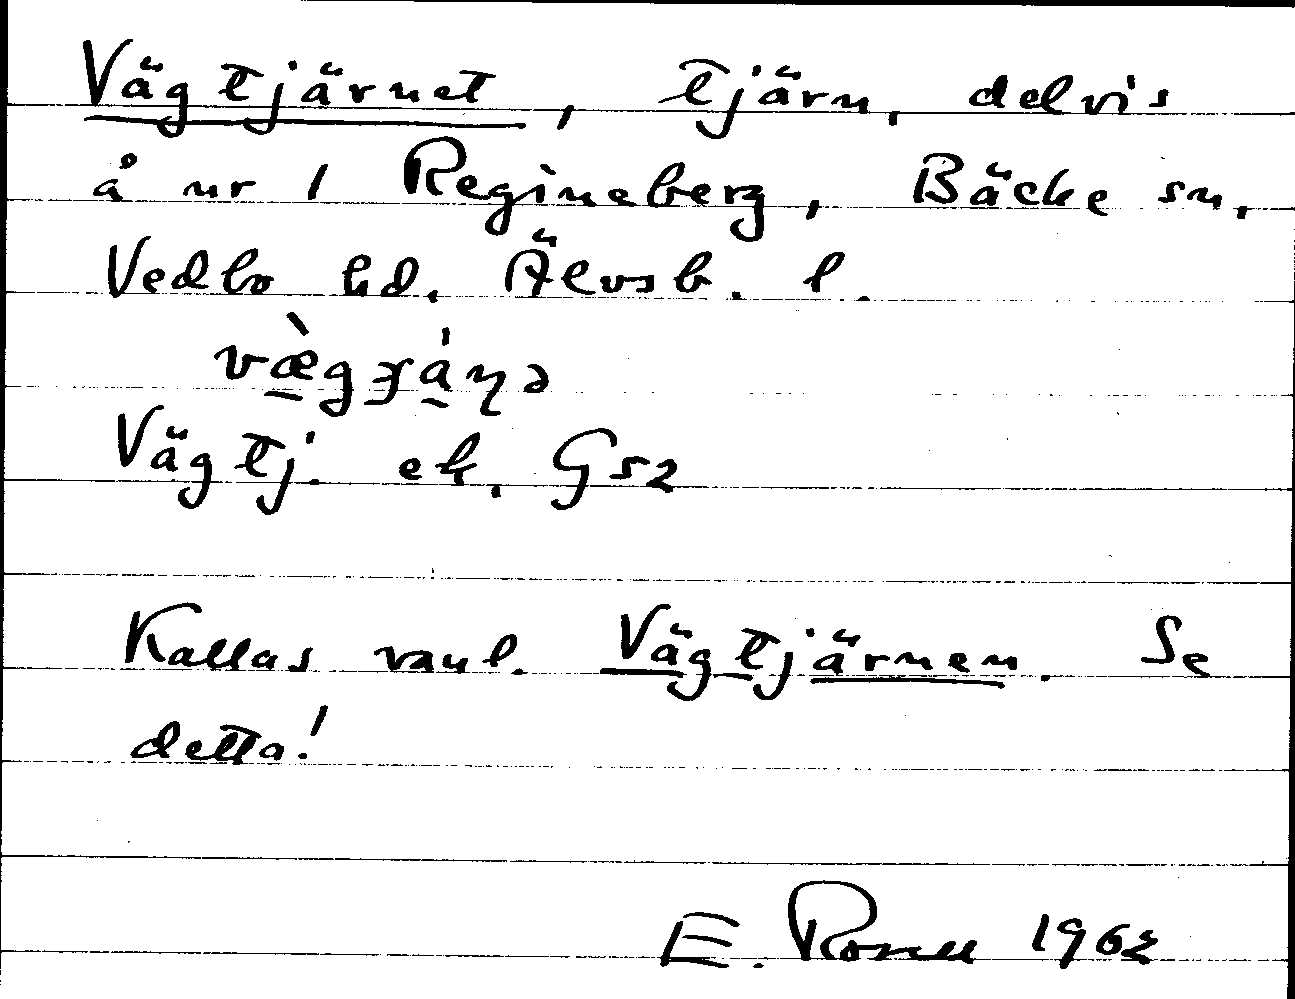 Vägtjärnet, tjärn, delvis
å nr 1 Regineberg, Bäcke sn,
Vedbo hd, Älvsb. l.
Vägtj. ek. G52
Kallas vanl. Vägtjärnen. Se
detta!
E. Rosell 1962